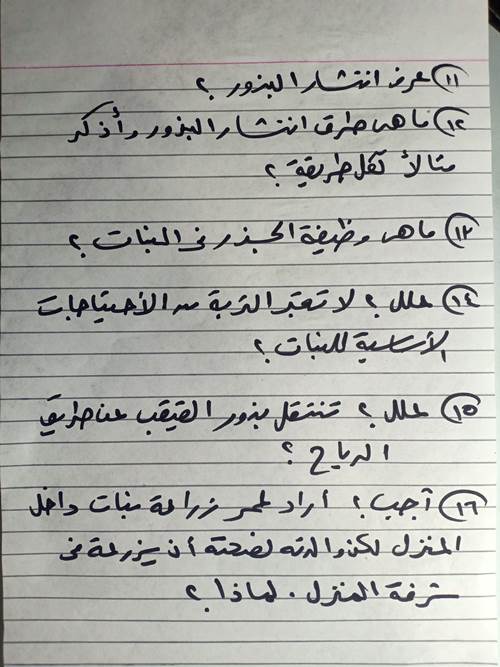 ١١) عرف انتشار البذور ؟
١٢) ما هى طرق انتشار البذور وأذكر
مثالاً لكل طريقة ؟
١٣) ما هى وظيفة الجذر فى النبات ؟
١٤) علل ؟ لا تعتبر التربة من الأحتياجات
الأساسية للنبات ؟
١٥) علل ؟ تنتقل بذور القيقب عن طريق
الرياح ؟
١٦) أجب ؟ أراد عمر زراعة نبات داخل
المنزل لكن والدته نصحته أن يزرعة فى
شرفة المنزل . لماذا ؟